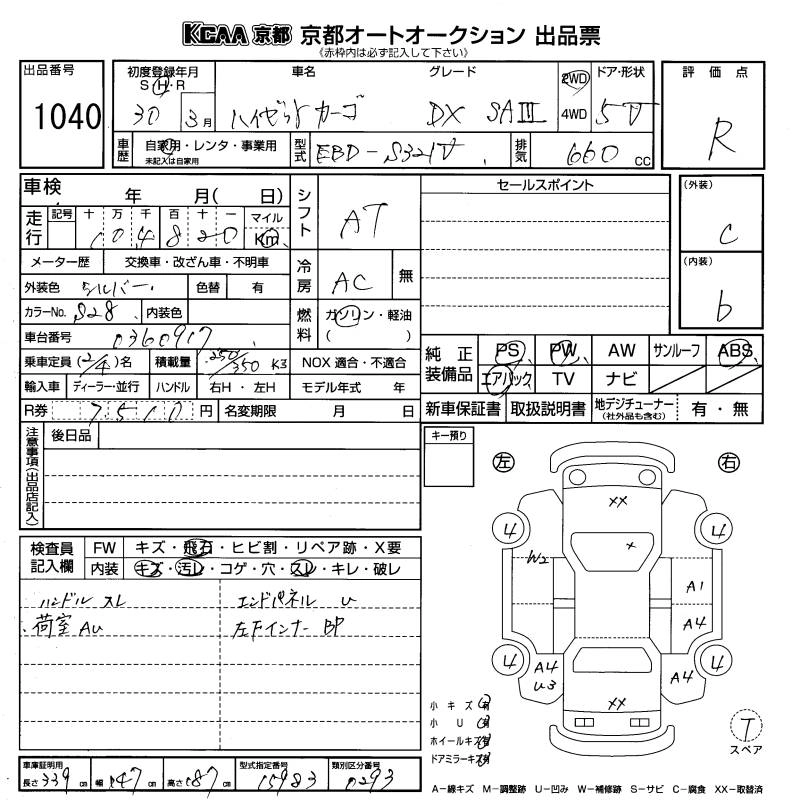 KCAA 京都 京都オートオークション 出品票
《赤枠内は必ず記入して下さい》
出品番号
1040
初度登録年月
S H・R
30 3月
車名
ハイゼットカーゴ
グレード
DX SAⅢ
2WD
4WD
ドア・形状
5V
評価点
R
車歴
自家用・レンタ・事業用
未記入は自家用
型式
EBD-S321V
排気
660 cc
車検 年 月( 日)
走行
記号 十 万 千 百 十 一 マイル
104820 Km
メーター歴 交換車・改ざん車・不明車
外装色 シルバー 色替 有
カラーNo. S28 内装色
車台番号 0360917
乗車定員 (2/4)名 積載量 250/350 K3
輸入車 ディーラー・並行 ハンドル 右H・左H
R券 7510 円 名変期限 月 日
シフト
AT
冷房
AC 無
燃料
ガソリン・軽油
( )
NOX 適合・不適合
モデル年式 年
セールスポイント
(外装)
C
(内装)
b
純正装備品
PS PW AW サンルーフ ABS
エアバック TV ナビ
新車保証書 取扱説明書 地デジチューナー(社外品も含む) 有・無
注意事項(出品店記入)
後日品
キー預り
左 右
検査員記入欄
FW キズ・飛石・ヒビ割・リペア跡・X要
内装 キズ・汚レ・コゲ・穴・スレ・キレ・破レ
ハンドル スレ
荷室 AU
エンドパネル U
左下インナー BP
XX
4 4
X
W2
A1
A4
4 4
A4
U3
A4
XX
小キズ(有)
小U(有)
ホイールキズ(有)
ドアミラーキズ(有)
T
スペア
車庫証明用
長さ 339 cm 幅 147 cm 高さ 187 cm
型式指定番号
15983
類別区分番号
0293
A-線キズ M-調整跡 U-凹み W-補修跡 S-サビ C-腐食 XX-取替済